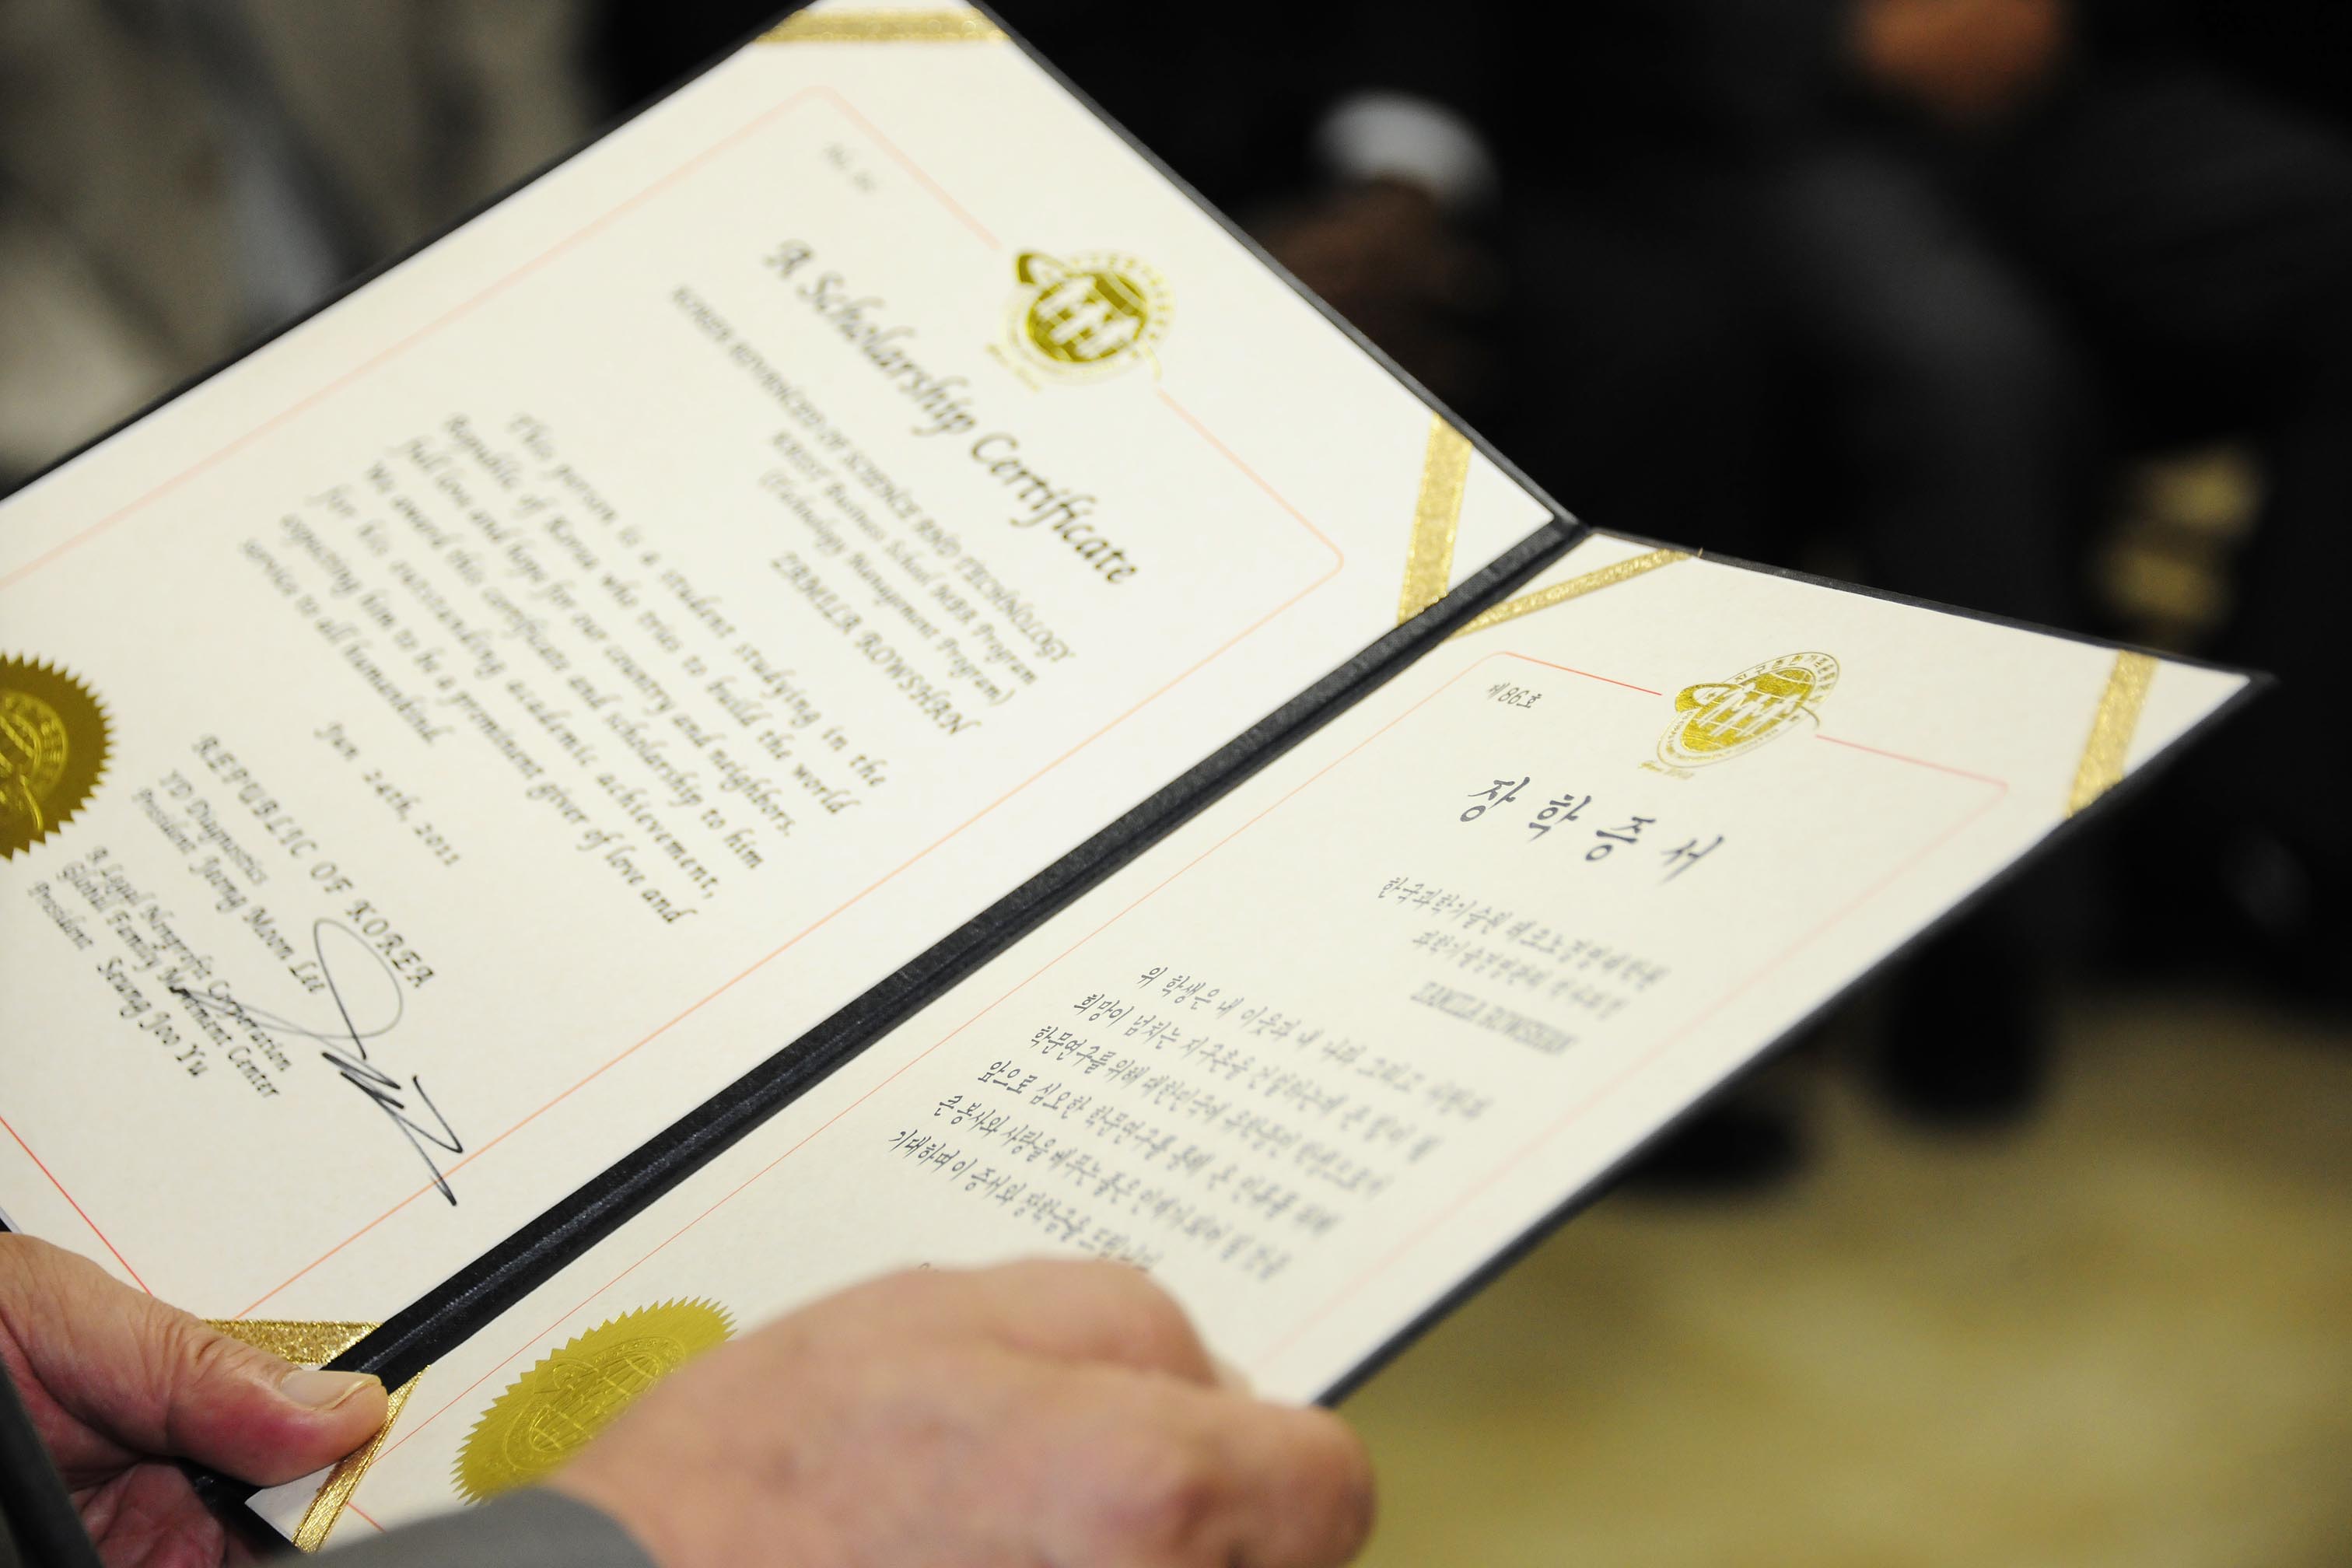 A Scholarship Certificate
KOREA ADVANCED OF SCIENCE AND TECHNOLOGY
KAIST Business School MBA Program
(Technology Management Program)
ZAMILA ROWSHAN
This person is a student studying in the
Republic of Korea who tries to build the world
full love and hope for our country and neighbors.
We award this certificate and scholarship to him
for his outstanding academic achievement,
expecting him to be a prominent giver of love and
service to all humankind.
Jan. 24th, 2011
REPUBLIC OF KOREA
YD Diagnostics
President Jeong Moon Lee
A Legal Nonprofit Corporation
Global Family Movement Center
President Seung Joo Yu
제86호
장학증서
한국과학기술원 테크노경영대학원
ZAMILA ROWSHAN
위 학생은 내 이웃과 내 나라 그리고 사랑과
희망이 넘치는 지구촌을 건설하는데
학문연구를 위해 대한민국에 유학중인 학생으로서
앞으로 심오한 학문연구를 통해 온 인류를 위해
큰 봉사와 사랑을 베푸는 훌륭한 인재가 되어 줄 것을
기대하며 이 증서와 장학금을 드립니다.